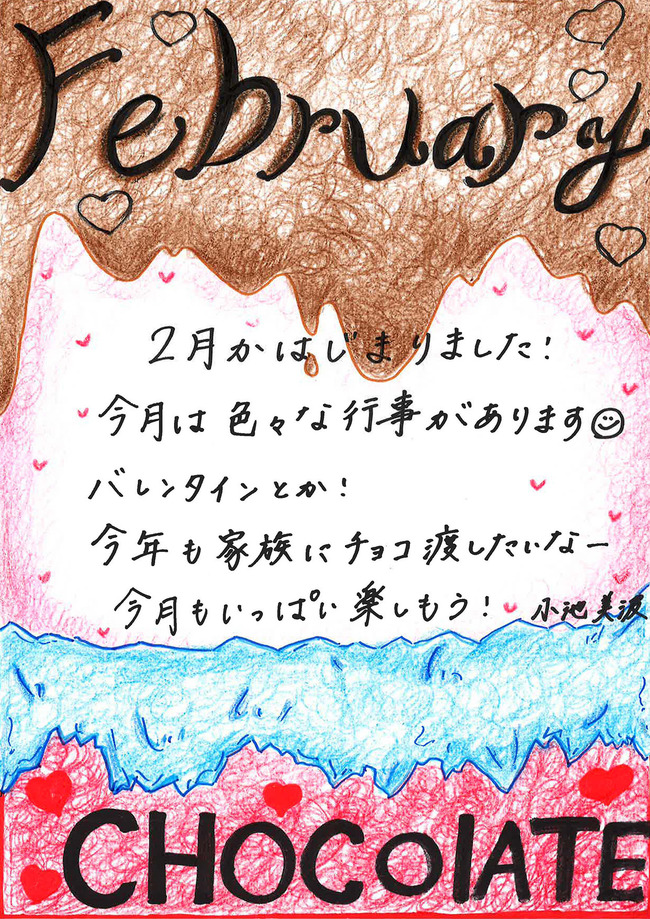 February
2月かはじまりました!
今月は色々な行事があります☺
バレンタインとか!
今年も家族にチョコ渡したいなー
今月もいっぱい楽しもう! 小池美波
CHOCOlATE